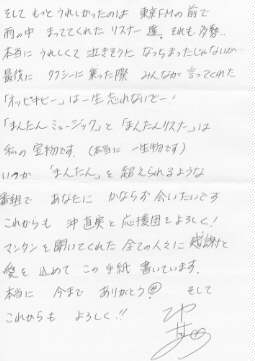 そして もっと うれしかったのは 東京FMの前で
雨の中 まっててくれた リスナー達。それも多勢…
本当に うれしくて 泣きそうに なっちまったじゃないか…
最後に タクシーに乗った際 みんなが 言ってくれた
「オッピキピー」は一生 忘れないでー!
「まんたんミュージック」と「まんたんリスナー」は
私の 宝物です。(本当に 一生物です)
いつか 「まんたん」を 超えられるような
番組で あなたに かならず 会いたいです
これからも 沖直実と 応援団を よろしく!
マンタンを 聞いてくれた 全ての人々に 感謝と
愛を 込めて この手紙 書いています。
本当に 今まで ありがとう そして
これからも よろしく!!